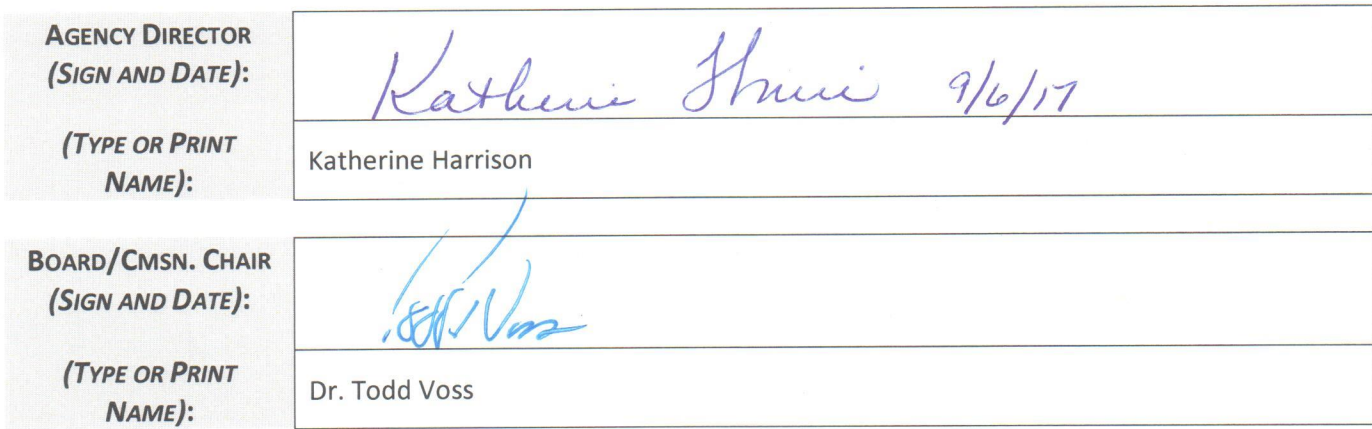 AGENCY DIRECTOR
(SIGN AND DATE):
Katherine 9/6/17
(TYPE OR PRINT
NAME):
Katherine Harrison
BOARD/CMSN. CHAIR
(SIGN AND DATE):
Todd Voss
(TYPE OR PRINT
NAME):
Dr. Todd Voss